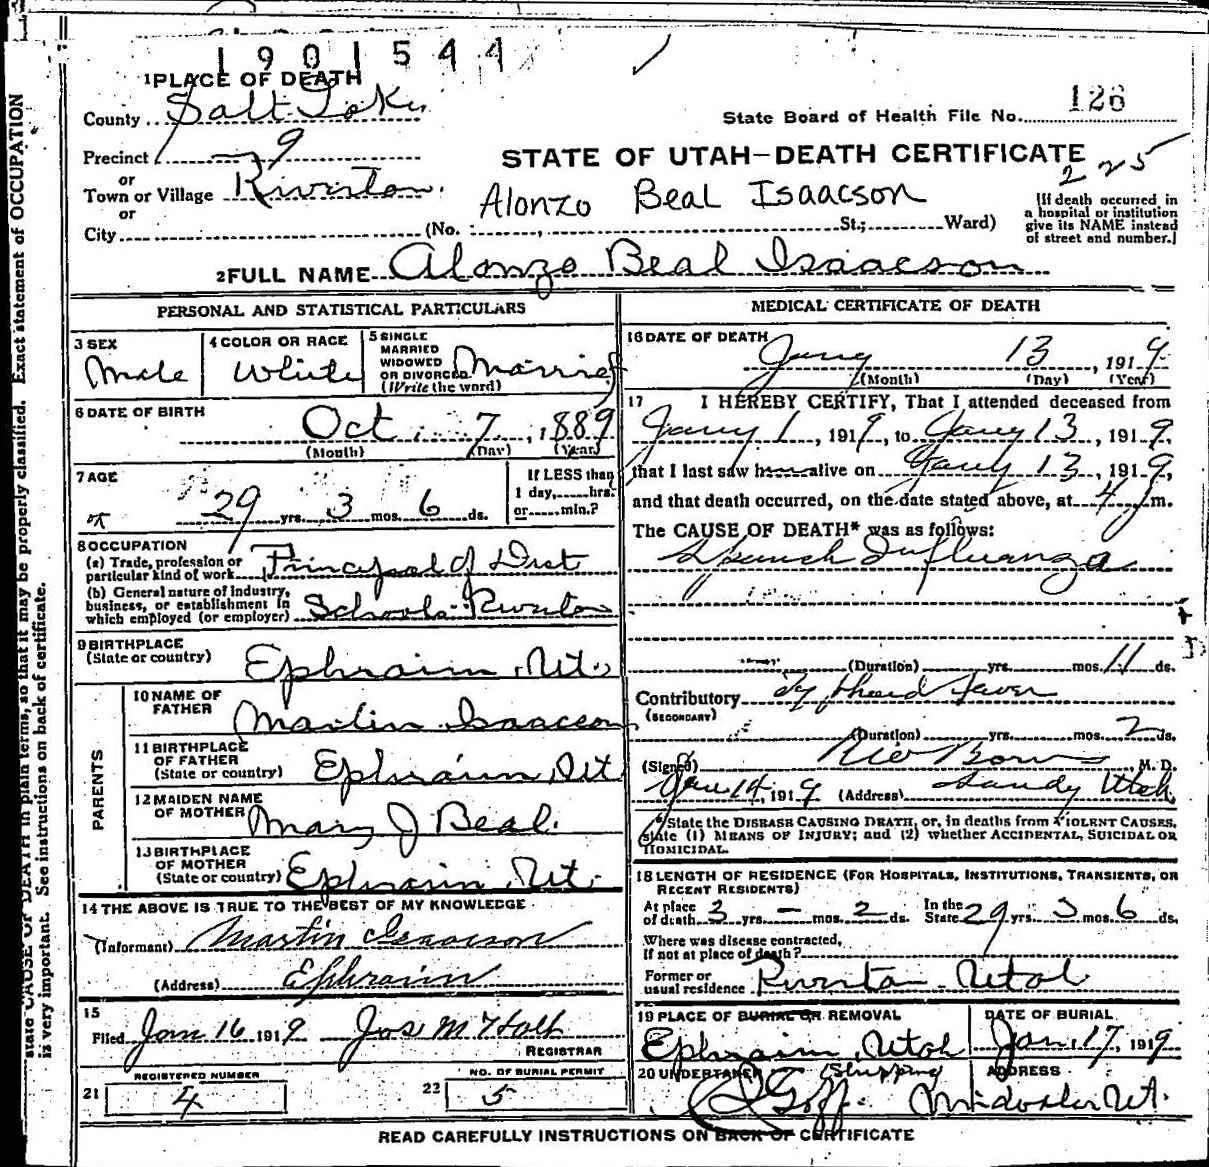 1901544
1 PLACE OF DEATH
County Salt Lake
State Board of Health File No. 126
Precinct 9
STATE OF UTAH—DEATH CERTIFICATE
225
or
Town or Village Riverton.
Alonzo Beal Isaacson
or
City (No. St.; Ward)
[If death occurred in
a hospital or institution
give its NAME instead
of street and number.]
2 FULL NAME Alonzo Beal Isaacson
PERSONAL AND STATISTICAL PARTICULARS
3 SEX
Male
4 COLOR OR RACE
White
5 SINGLE
MARRIED
WIDOWED
OR DIVORCED
(Write the word)
Married
6 DATE OF BIRTH
Oct. 7, 1889
(Month) (Day) (Year)
7 AGE
29 yrs. 3 mos. 6 ds.
If LESS than
1 day, hrs.
or min.?
8 OCCUPATION
(a) Trade, profession or
particular kind of work Principal of Dist
(b) General nature of industry,
business, or establishment in
which employed (or employer) Schools Riverton
9 BIRTHPLACE
(State or country) Ephraim, Ut.
PARENTS
10 NAME OF
FATHER Martin Isaacson
11 BIRTHPLACE
OF FATHER
(State or country) Ephraim, Ut
12 MAIDEN NAME
OF MOTHER Mary J Beal.
13 BIRTHPLACE
OF MOTHER
(State or country) Ephraim, Ut.
14 THE ABOVE IS TRUE TO THE BEST OF MY KNOWLEDGE
(Informant) Martin Isaacson
(Address) Ephraim
15
Filed Jan 16 1919 Jos M Holt
REGISTRAR
REGISTERED NUMBER
21 4
NO. OF BURIAL PERMIT
22 5
MEDICAL CERTIFICATE OF DEATH
16 DATE OF DEATH
Jany 13, 1919
(Month) (Day) (Year)
17 I HEREBY CERTIFY, That I attended deceased from
Jany 1, 1919, to Jany 13, 1919,
that I last saw h alive on Jany 13, 1919,
and that death occurred, on the date stated above, at 4 m.
The CAUSE OF DEATH* was as follows:
Spanish Influanza
(Duration) yrs. mos. 11 ds.
Contributory Typhoid Fever
(SECONDARY)
(Duration) yrs. mos. 2 ds.
(Signed) M. D.
Jan 14, 1919 (Address) Sandy Utah
*State the DISEASE CAUSING DEATH, or, in deaths from VIOLENT CAUSES,
state (1) MEANS OF INJURY; and (2) whether ACCIDENTAL, SUICIDAL OR
HOMICIDAL.
18 LENGTH OF RESIDENCE (FOR HOSPITALS, INSTITUTIONS, TRANSIENTS, OR
RECENT RESIDENTS)
At place
of death 3 yrs. – mos. 2 ds. In the
State 29 yrs. 3 mos. 6 ds.
Where was disease contracted,
if not at place of death?
Former or
usual residence Riverton Utah
19 PLACE OF BURIAL OR REMOVAL
Ephraim, Utah
DATE OF BURIAL
Jan, 17, 1919
20 UNDERTAKER (Shipping
Goff.
ADDRESS
Midvale Ut.
READ CAREFULLY INSTRUCTIONS ON BACK OF CERTIFICATE
state CAUSE OF DEATH in plain terms, so that it may be properly classified. Exact statement of OCCUPATION
is very important. See instructions on back of certificate.